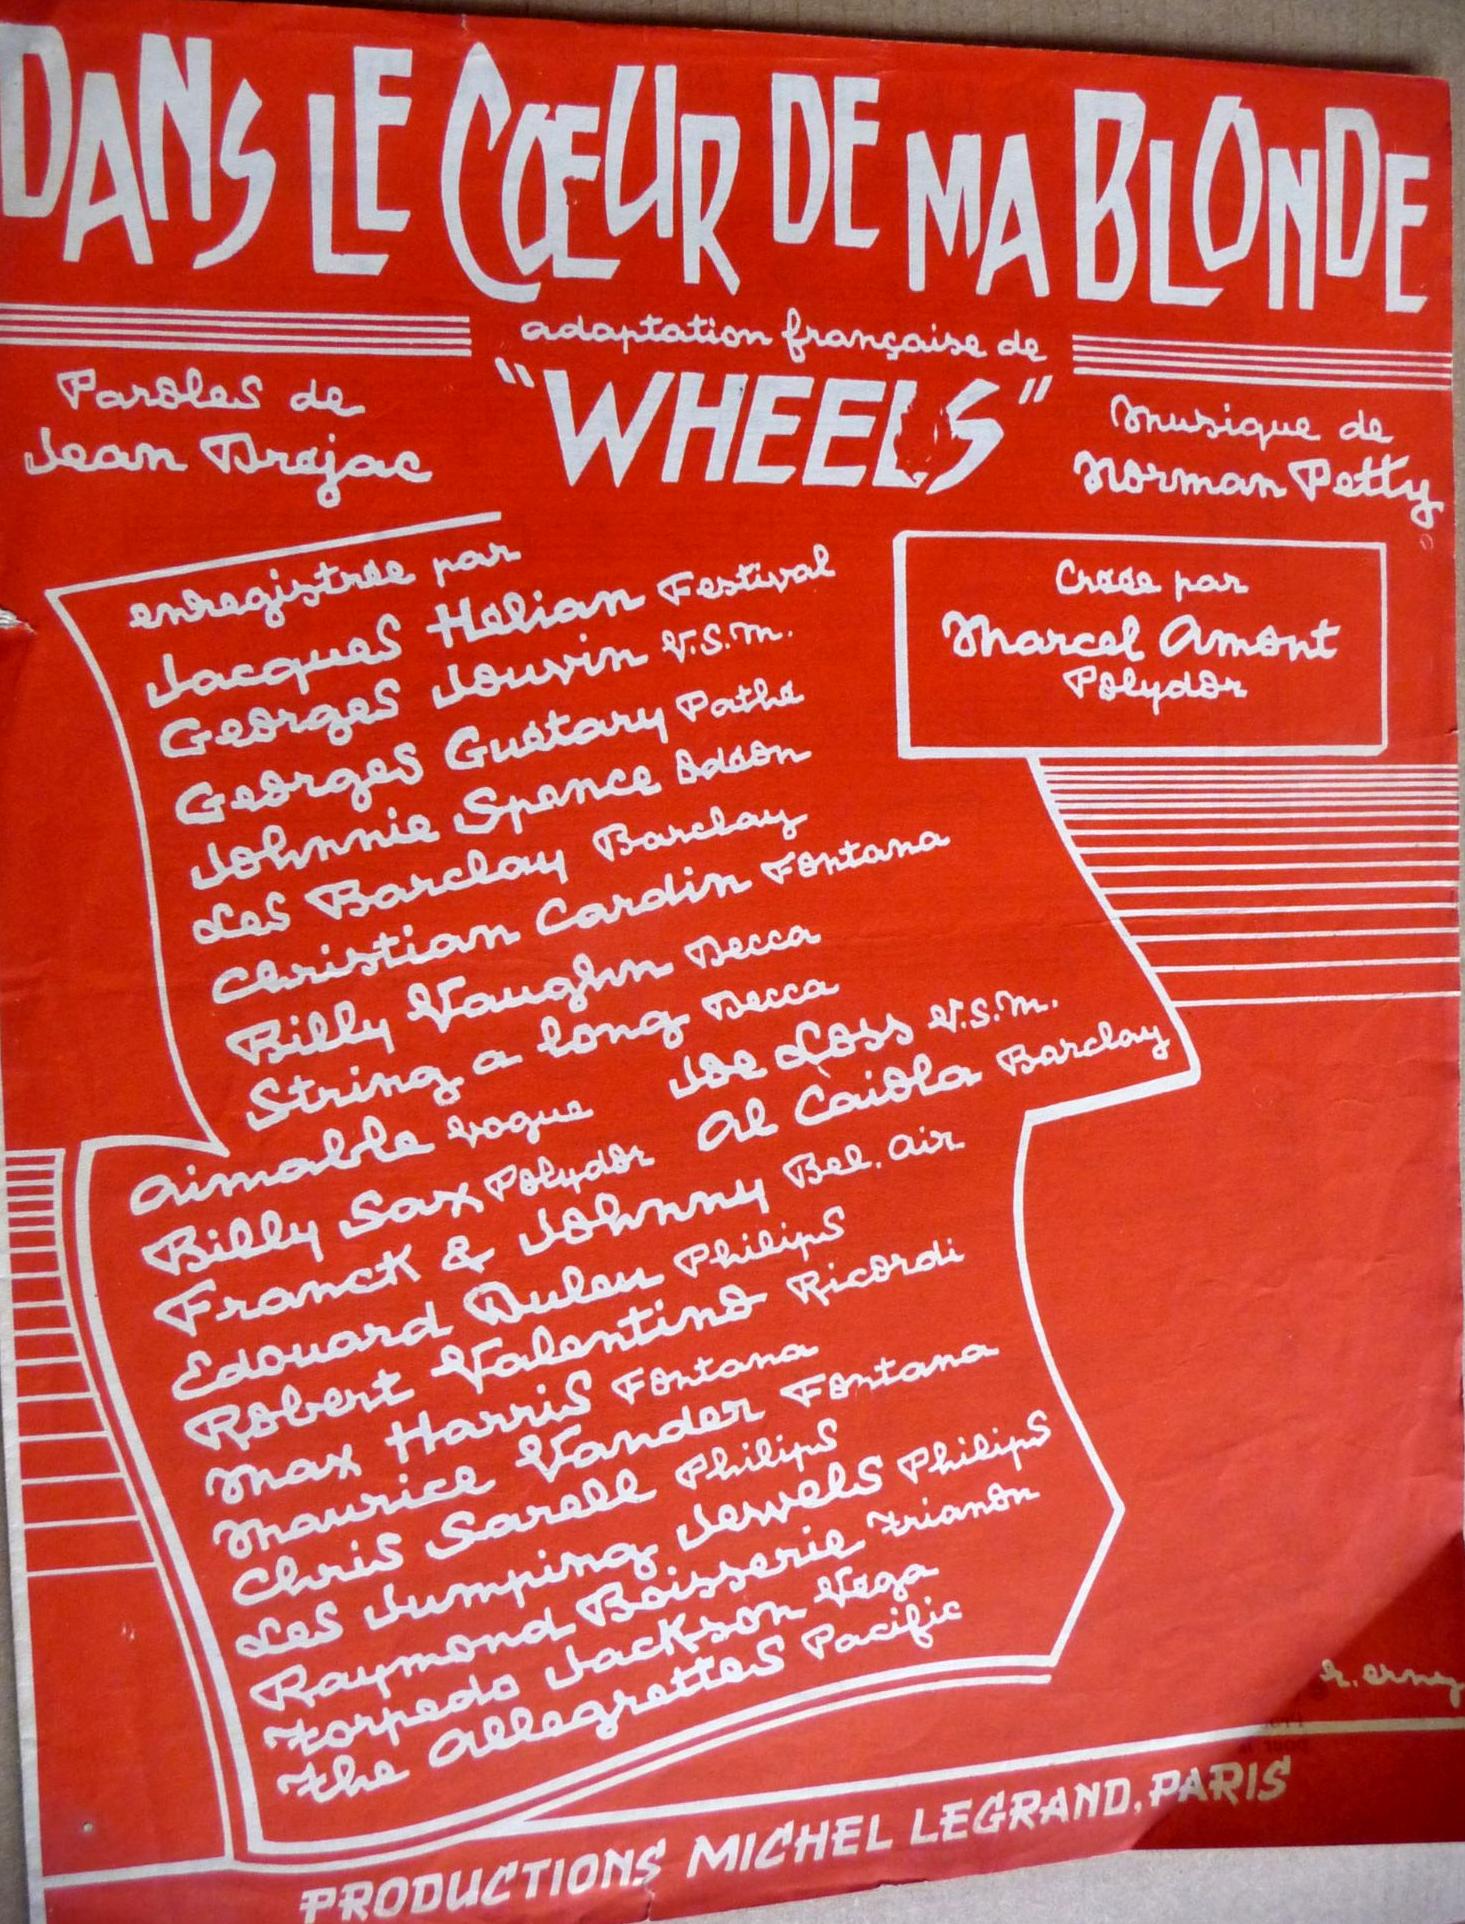 DANS LE CŒUR DE MA BLONDE
adaptation française de
"WHEELS"
Paroles de
Jean Dréjac
Musique de
Norman Petty
Créée par
Marcel Amont
Polydor
enregistrée par
Jacques Hélian Festival
Georges Jouvin V.S.M.
Georges Guétary Pathé
Johnnie Spence Odéon
Les Barclay Barclay
Christian Cardin Fontana
Billy Vaughn Decca
String a long Decca
Aimable Vogue Joe Loss V.S.M.
Billy Sax Polydor Al Caiola Barclay
Franck & Johnny Bel. Air
Edouard Duleu Philips
Robert Valentino Ricordi
Max Harris Fontana
Maurice Vander Fontana
Chris Sarell Philips
Les Jumping Jewels Philips
Raymond Boisserie Trianon
Torpedo Jackson Véga
The Allegrettes Pacific
PRODUCTIONS MICHEL LEGRAND, PARIS